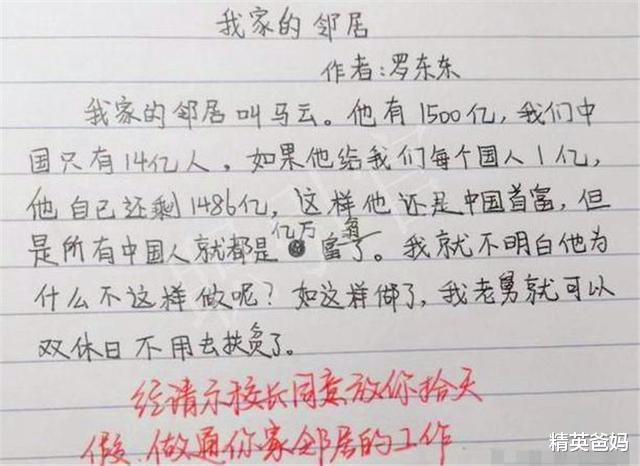 我家的邻居
作者:罗东东
我家的邻居叫马云。他有1500亿,我们中
国只有14亿人。如果他给我们每个国人1亿,
他自己还剩1486亿,这样他还是中国首富,但
是所有中国人就都是亿万富翁了。我就不明白他为
什么不这样做呢?如这样做了,我老舅就可以
双休日不用去扶贫了。
经请示校长同意放你拾天
假.做通你家邻居的工作
精英爸妈